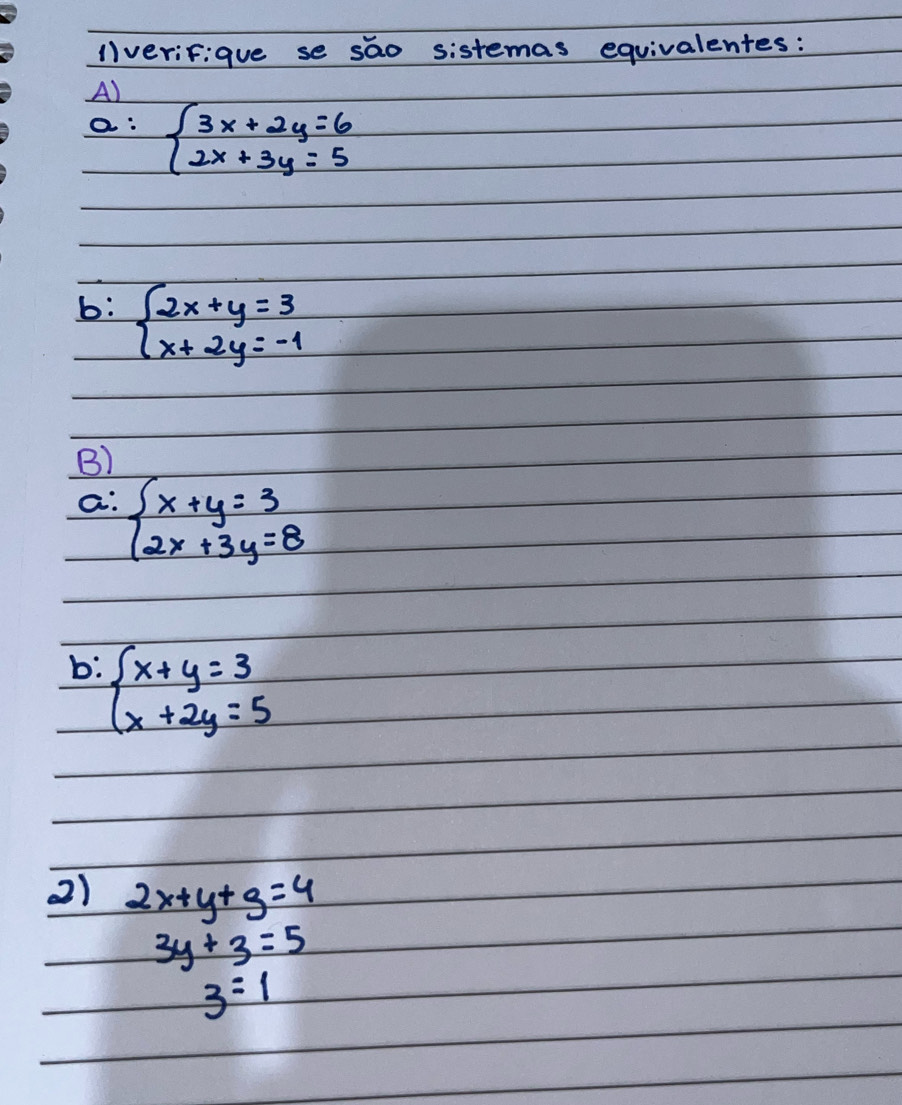 1) verifique se são sistemas equivalentes:
A)
a: { 3x + 2y = 6
2x + 3y = 5
b: { 2x + y = 3
x + 2y = -1
B)
a: { x + y = 3
2x + 3y = 8
b: { x + y = 3
x + 2y = 5
2) 2x + y + z = 4
3y + z = 5
z = 1